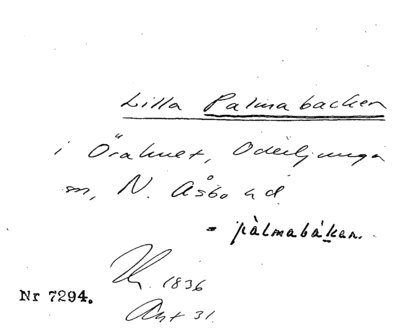 Lilla Palmabacken
i Örahult, Oderljunga
sn, N. Åsbo hd.
= pàlmabákan.
1836
Nr 7294.
Ant 31.